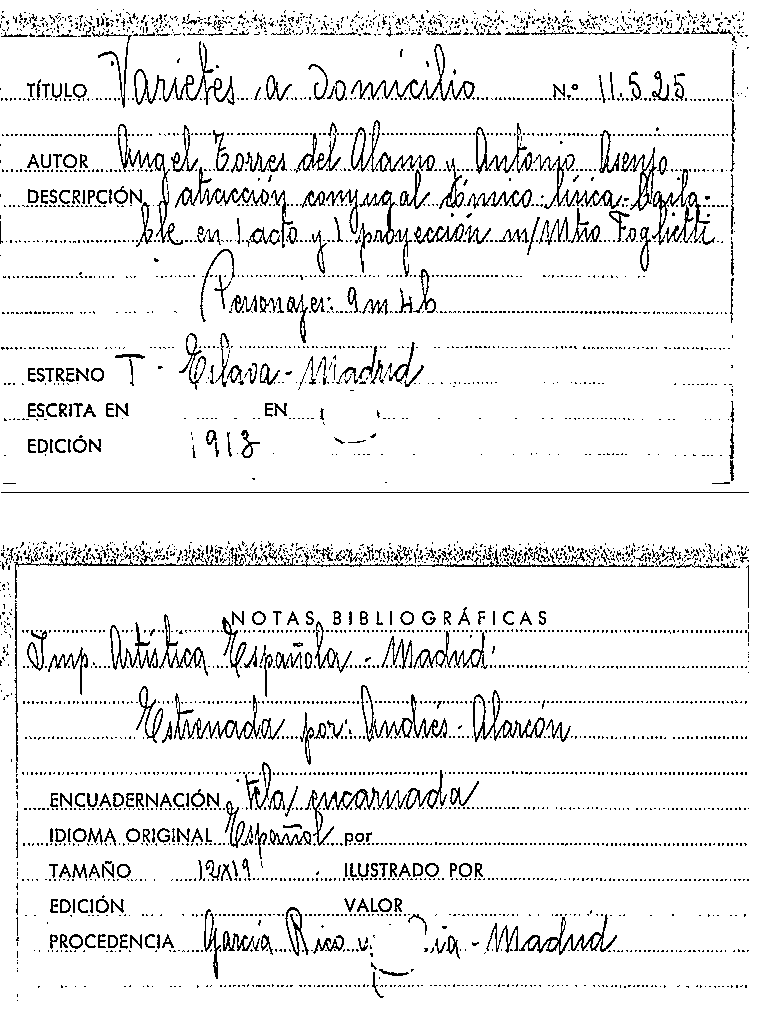 TÍTULO Varietés a domicilio N.º 11.525
AUTOR Angel Torres del Alamo y Antonio Asenjo
DESCRIPCIÓN 1 atracción conyugal cómico-lírica-baila-
ble en 1 acto y 1 proyección m/ Mtro Foglietti
Personajes: 9 m 4 h
ESTRENO T. Eslava-Madrid
ESCRITA EN EN
EDICIÓN 1913
NOTAS BIBLIOGRÁFICAS
Imp. Artística Española - Madrid.
Estrenada por: Andrés-Alarcón
ENCUADERNACIÓN tela encarnada
IDIOMA ORIGINAL Español por
TAMAÑO 12x19 ILUSTRADO POR
EDICIÓN VALOR
PROCEDENCIA García Rico y - Madrid